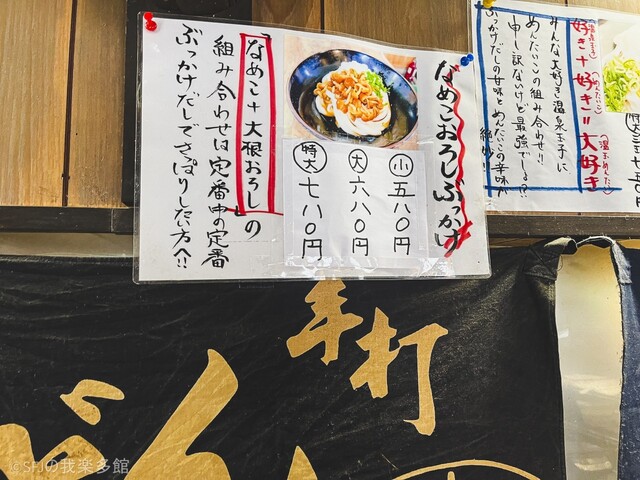 なめこおろしぶっかけ
小 五八〇円
大 六八〇円
特大 七八〇円
「なめこ+大根おろし」の
組み合わせは定番中の定番
ぶっかけだしでさっぱりしたい方へ!!
好き+好き=大好き
(温泉玉子)
(めんたいこ)
(温玉めんたい)
みんな大好き温泉玉子に
めんたいこの組み合わせ!!
申し訳ないけど最強でしょ!?
ぶっかけだしの甘味とめんたいこの辛味が
絶妙!!
手打
どん
@SFJの我楽多館